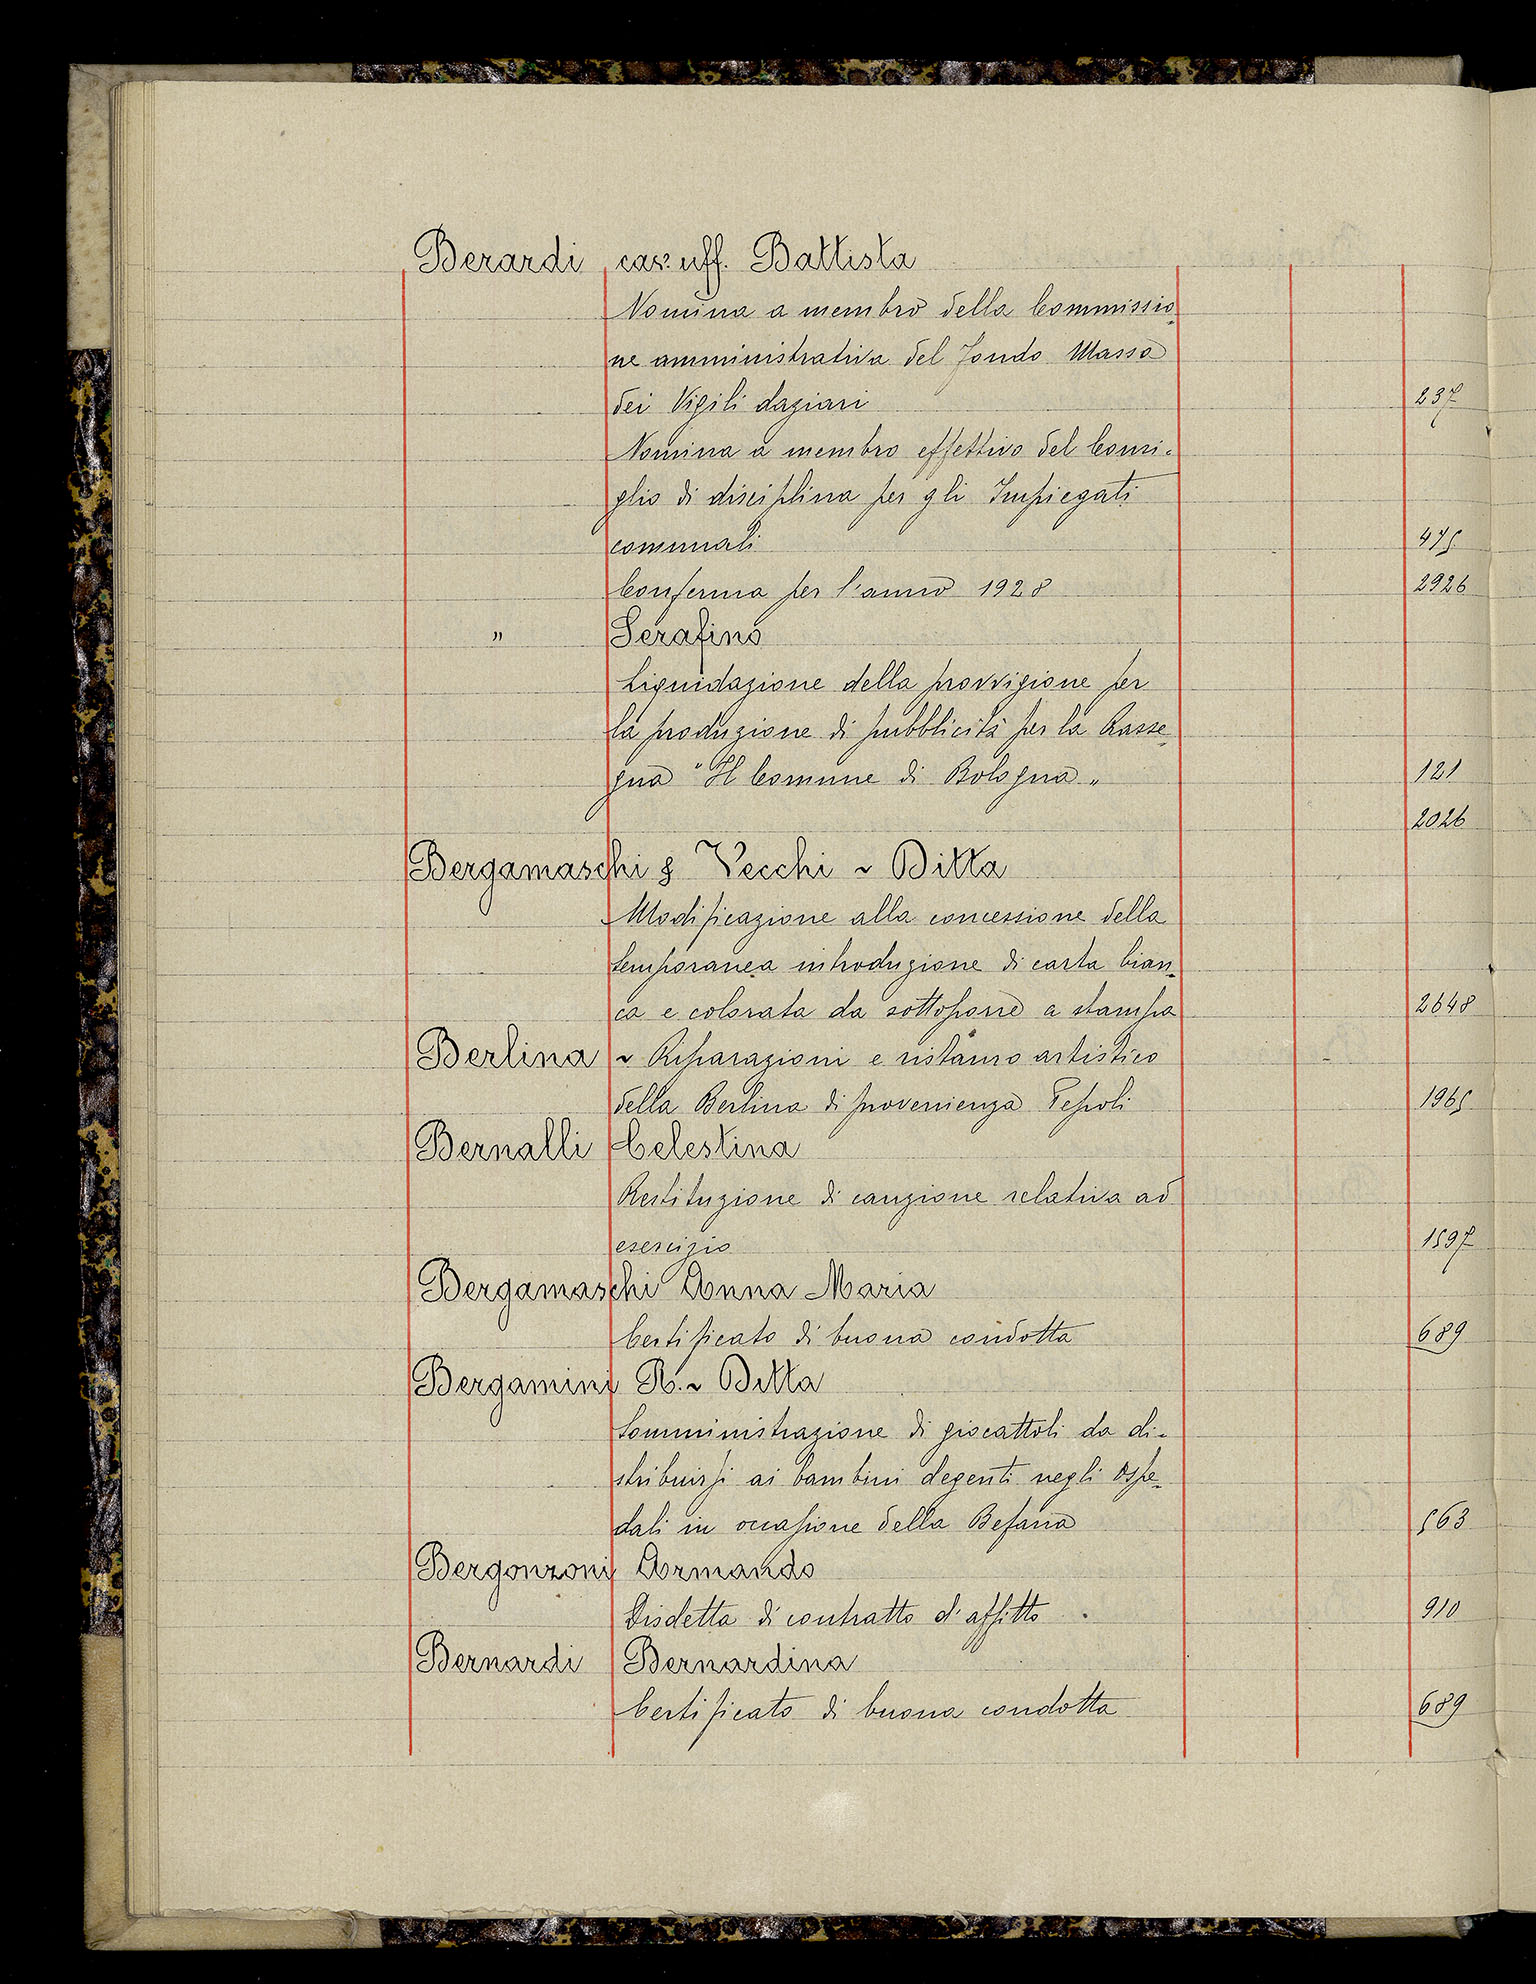 Berardi cav. uff. Battista
Nomina a membro della Commissio-
ne amministrativa del fondo Massa
dei Vigili daziari 237
Nomina a membro effettivo del Consi-
glio di disciplina per gli Impiegati
comunali 475
Conferma per l'anno 1928 2926
" Serafino
Liquidazione della provvigione per
la produzione di pubblicità per la Rasse-
gna "Il Comune di Bologna" 121
2026
Bergamaschi & Vecchi ~ Ditta
Modificazione alla concessione della
temporanea introduzione di carta bian-
ca e colorata da sottoporre a stampa 2648
Berlina ~ Riparazioni e ristauro artistico
della Berlina di provenienza Pepoli 1965
Bernalli Celestina
Restituzione di cauzione relativa ad
esercizio 1597
Bergamaschi Anna Maria
Certificato di buona condotta 689
Bergamini R. ~ Ditta
Somministrazione di giocattoli da di-
stribuirsi ai bambini degenti negli Ospe-
dali in occasione della Befana 563
Bergonzoni Armando
Disdetta di contratto d'affitto 910
Bernardi Bernardina
Certificato di buona condotta 689